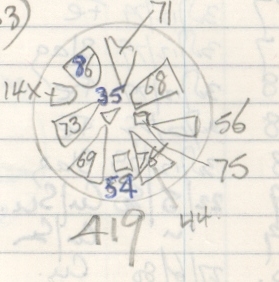 3)
71
86
68
14x
35
73
56
69
76
75
54
419
44